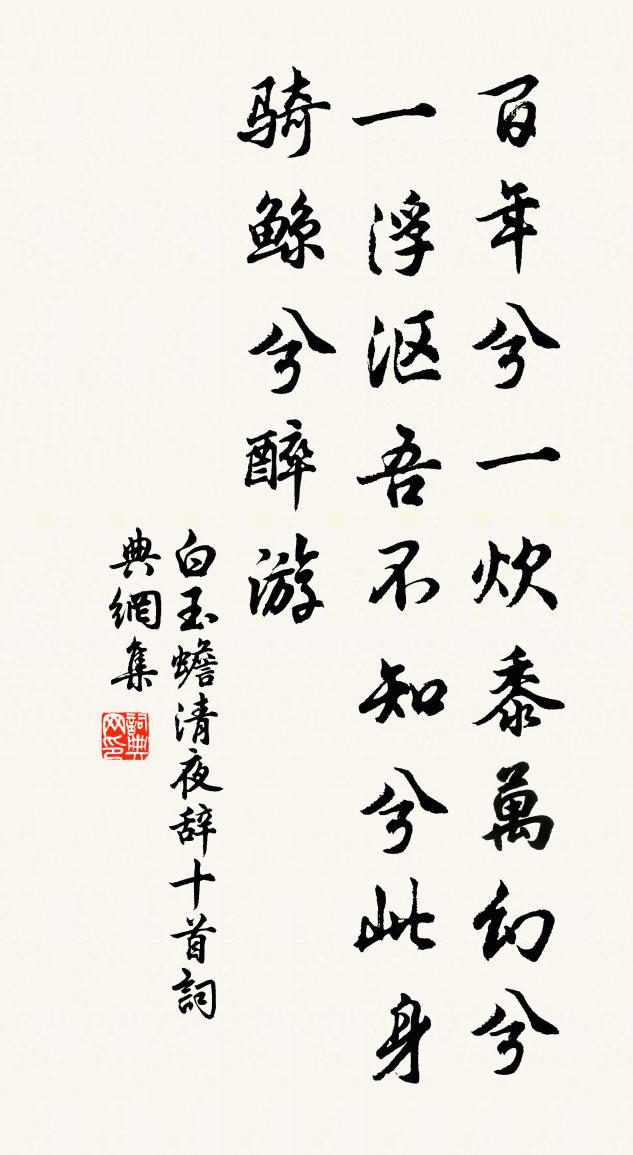 百年兮一炊黍萬幻兮
一浮沤吾不知兮此身
骑鲸兮醉游
白玉蟾清夜辞十首詞
典網集
詞典网印